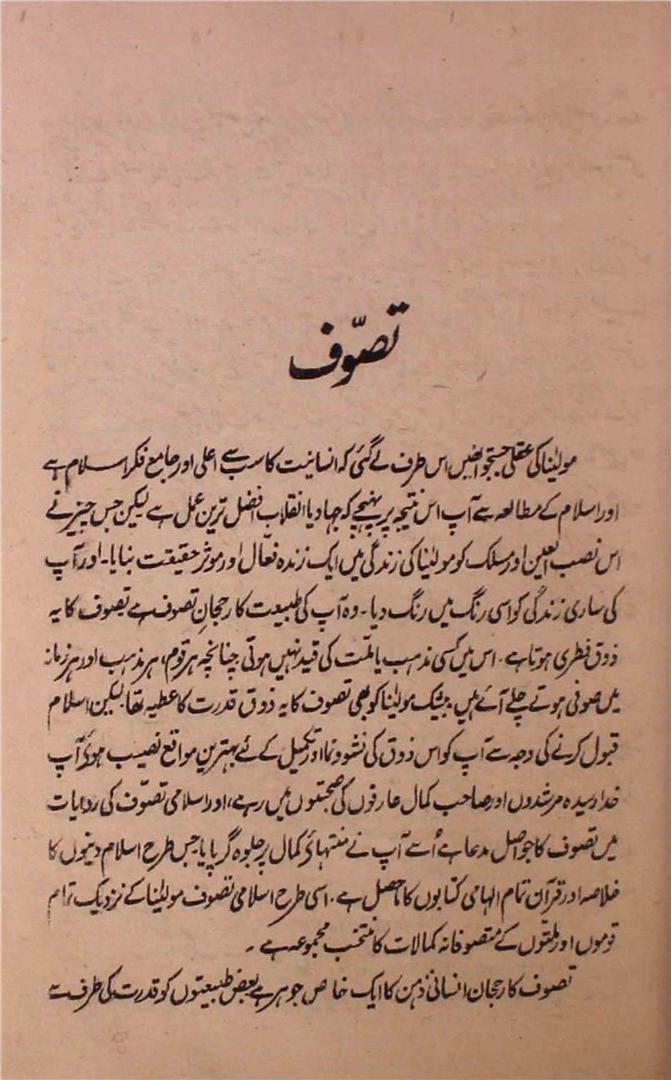 تصوّف
مولیٰنا کی عقلی جستجو انھیں اس طرف لے گئی کہ انسانیت کا سب سے اعلیٰ اور جامع فکر اسلام ہے
اور اسلام کے مطالعہ سے آپ اس نتیجہ پر پہنچے کہ جہاد یا انقلاب افضل ترین عمل ہے لیکن جس چیز نے
اس نصب العین اور مسلک کو مولیٰنا کی زندگی میں ایک زندہ فعّال اور موثر حقیقت بنایا۔ اور آپ
کی ساری زندگی کو اسی رنگ میں رنگ دیا۔ وہ آپ کی طبیعت کا رجحانِ تصوف ہے تصوف کا یہ
ذوق فطری ہوتا ہے۔ اس میں کسی مذہب یا ملّت کی قید نہیں ہوتی چنانچہ ہر قوم، ہر مذہب اور ہر زمانہ
میں صوفی ہوتے چلے آئے ہیں، بیشک مولیٰنا کو بھی تصوف کا یہ ذوق قدرت کا عطیہ تھا لیکن اسلام
قبول کرنے کی وجہ سے آپ کو اس ذوق کی نشوونما اور تکمیل کے لئے بہترین مواقع نصیب ہوئے آپ
خدا رسیدہ مرشدوں اور صاحب کمال عارفوں کی صحبتوں میں رہے، اور اسلامی تصوّف کی روایات
میں تصوف کا جو اصل مدعا ہے اُسے آپ نے منتہائے کمال پر جلوہ گر پایا جس طرح اسلام دینوں کا
خلاصہ اور قرآن تمام الہامی کتابوں کا حاصل ہے۔ اسی طرح اسلامی تصوف مولیٰنا کے نزدیک تمام
قوموں اور ملتوں کے متصوفانہ کمالات کا منتخب مجموعہ ہے۔
تصوف کا رجحان انسانی ذہن کا ایک خاص جوہر ہے بعض طبیعتوں کو قدرت کی طرف سے